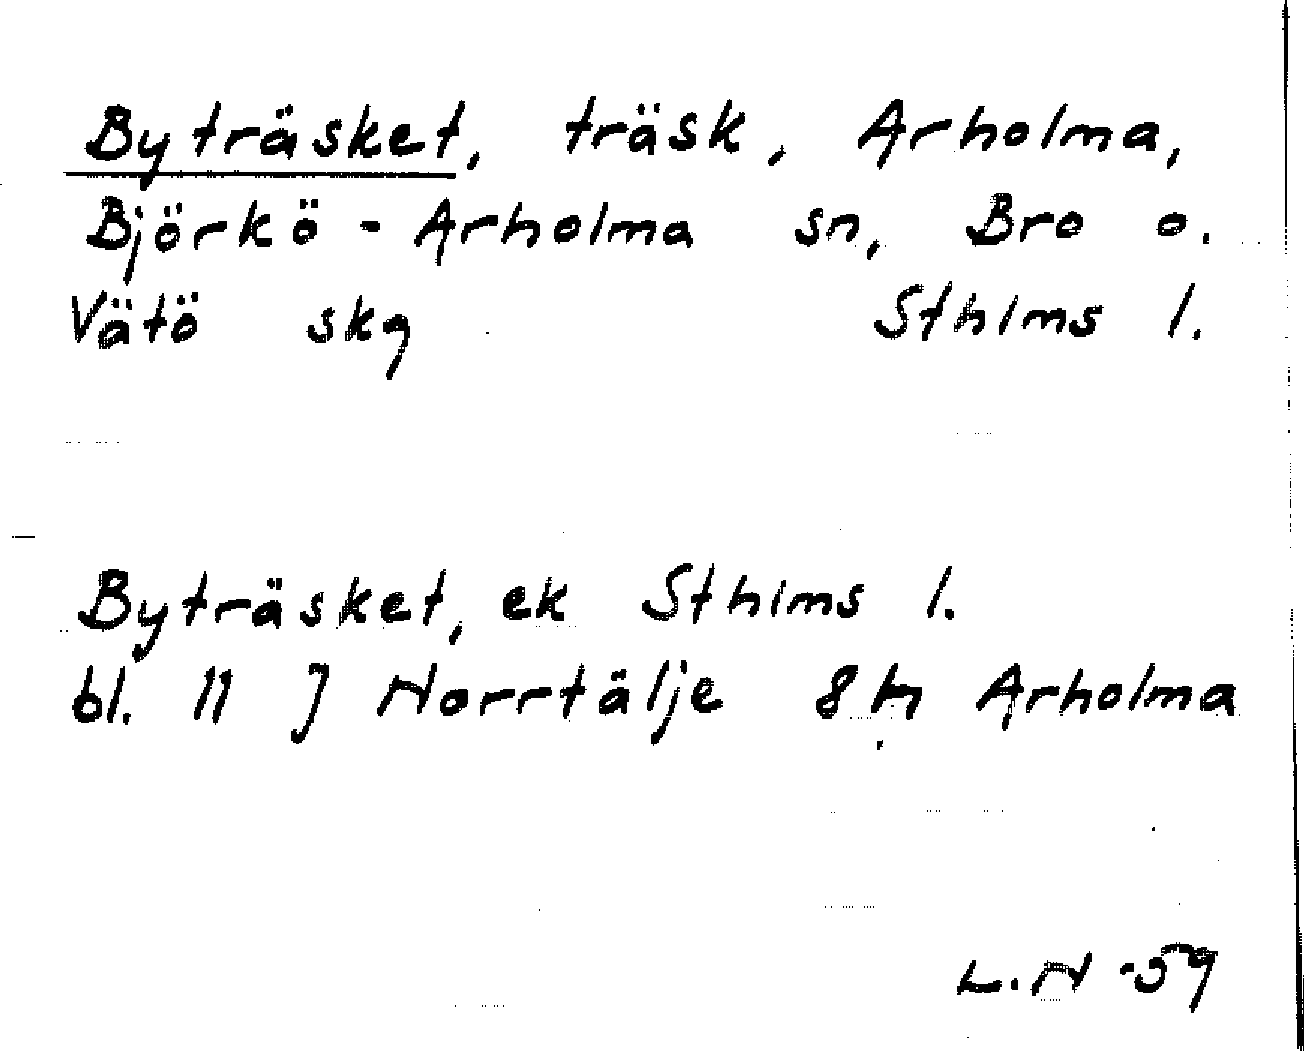 Byträsket, träsk, Arholma,
Björkö - Arholma sn, Bro o.
Vätö skg Sthlms l.
Byträsket, ek Sthlms l.
bl. 11 J Norrtälje 8 h Arholma
L.N -59